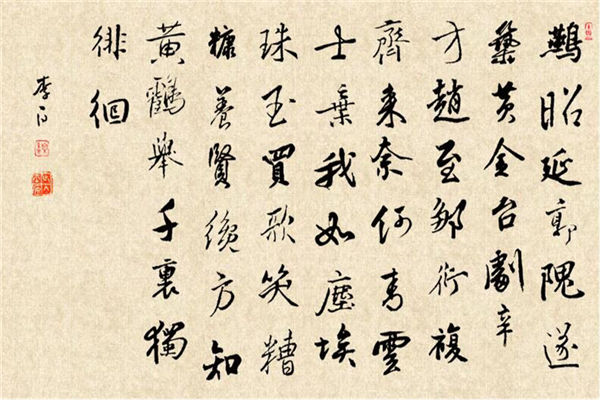 鷰昭延郭隗遂
築黄金台劇辛
方趙至鄒衍複
齊来奈何青雲
士棄我如塵埃
珠玉買歌笑糟
糠養賢纔方知
黄鶴舉千裏獨
徘徊
李白